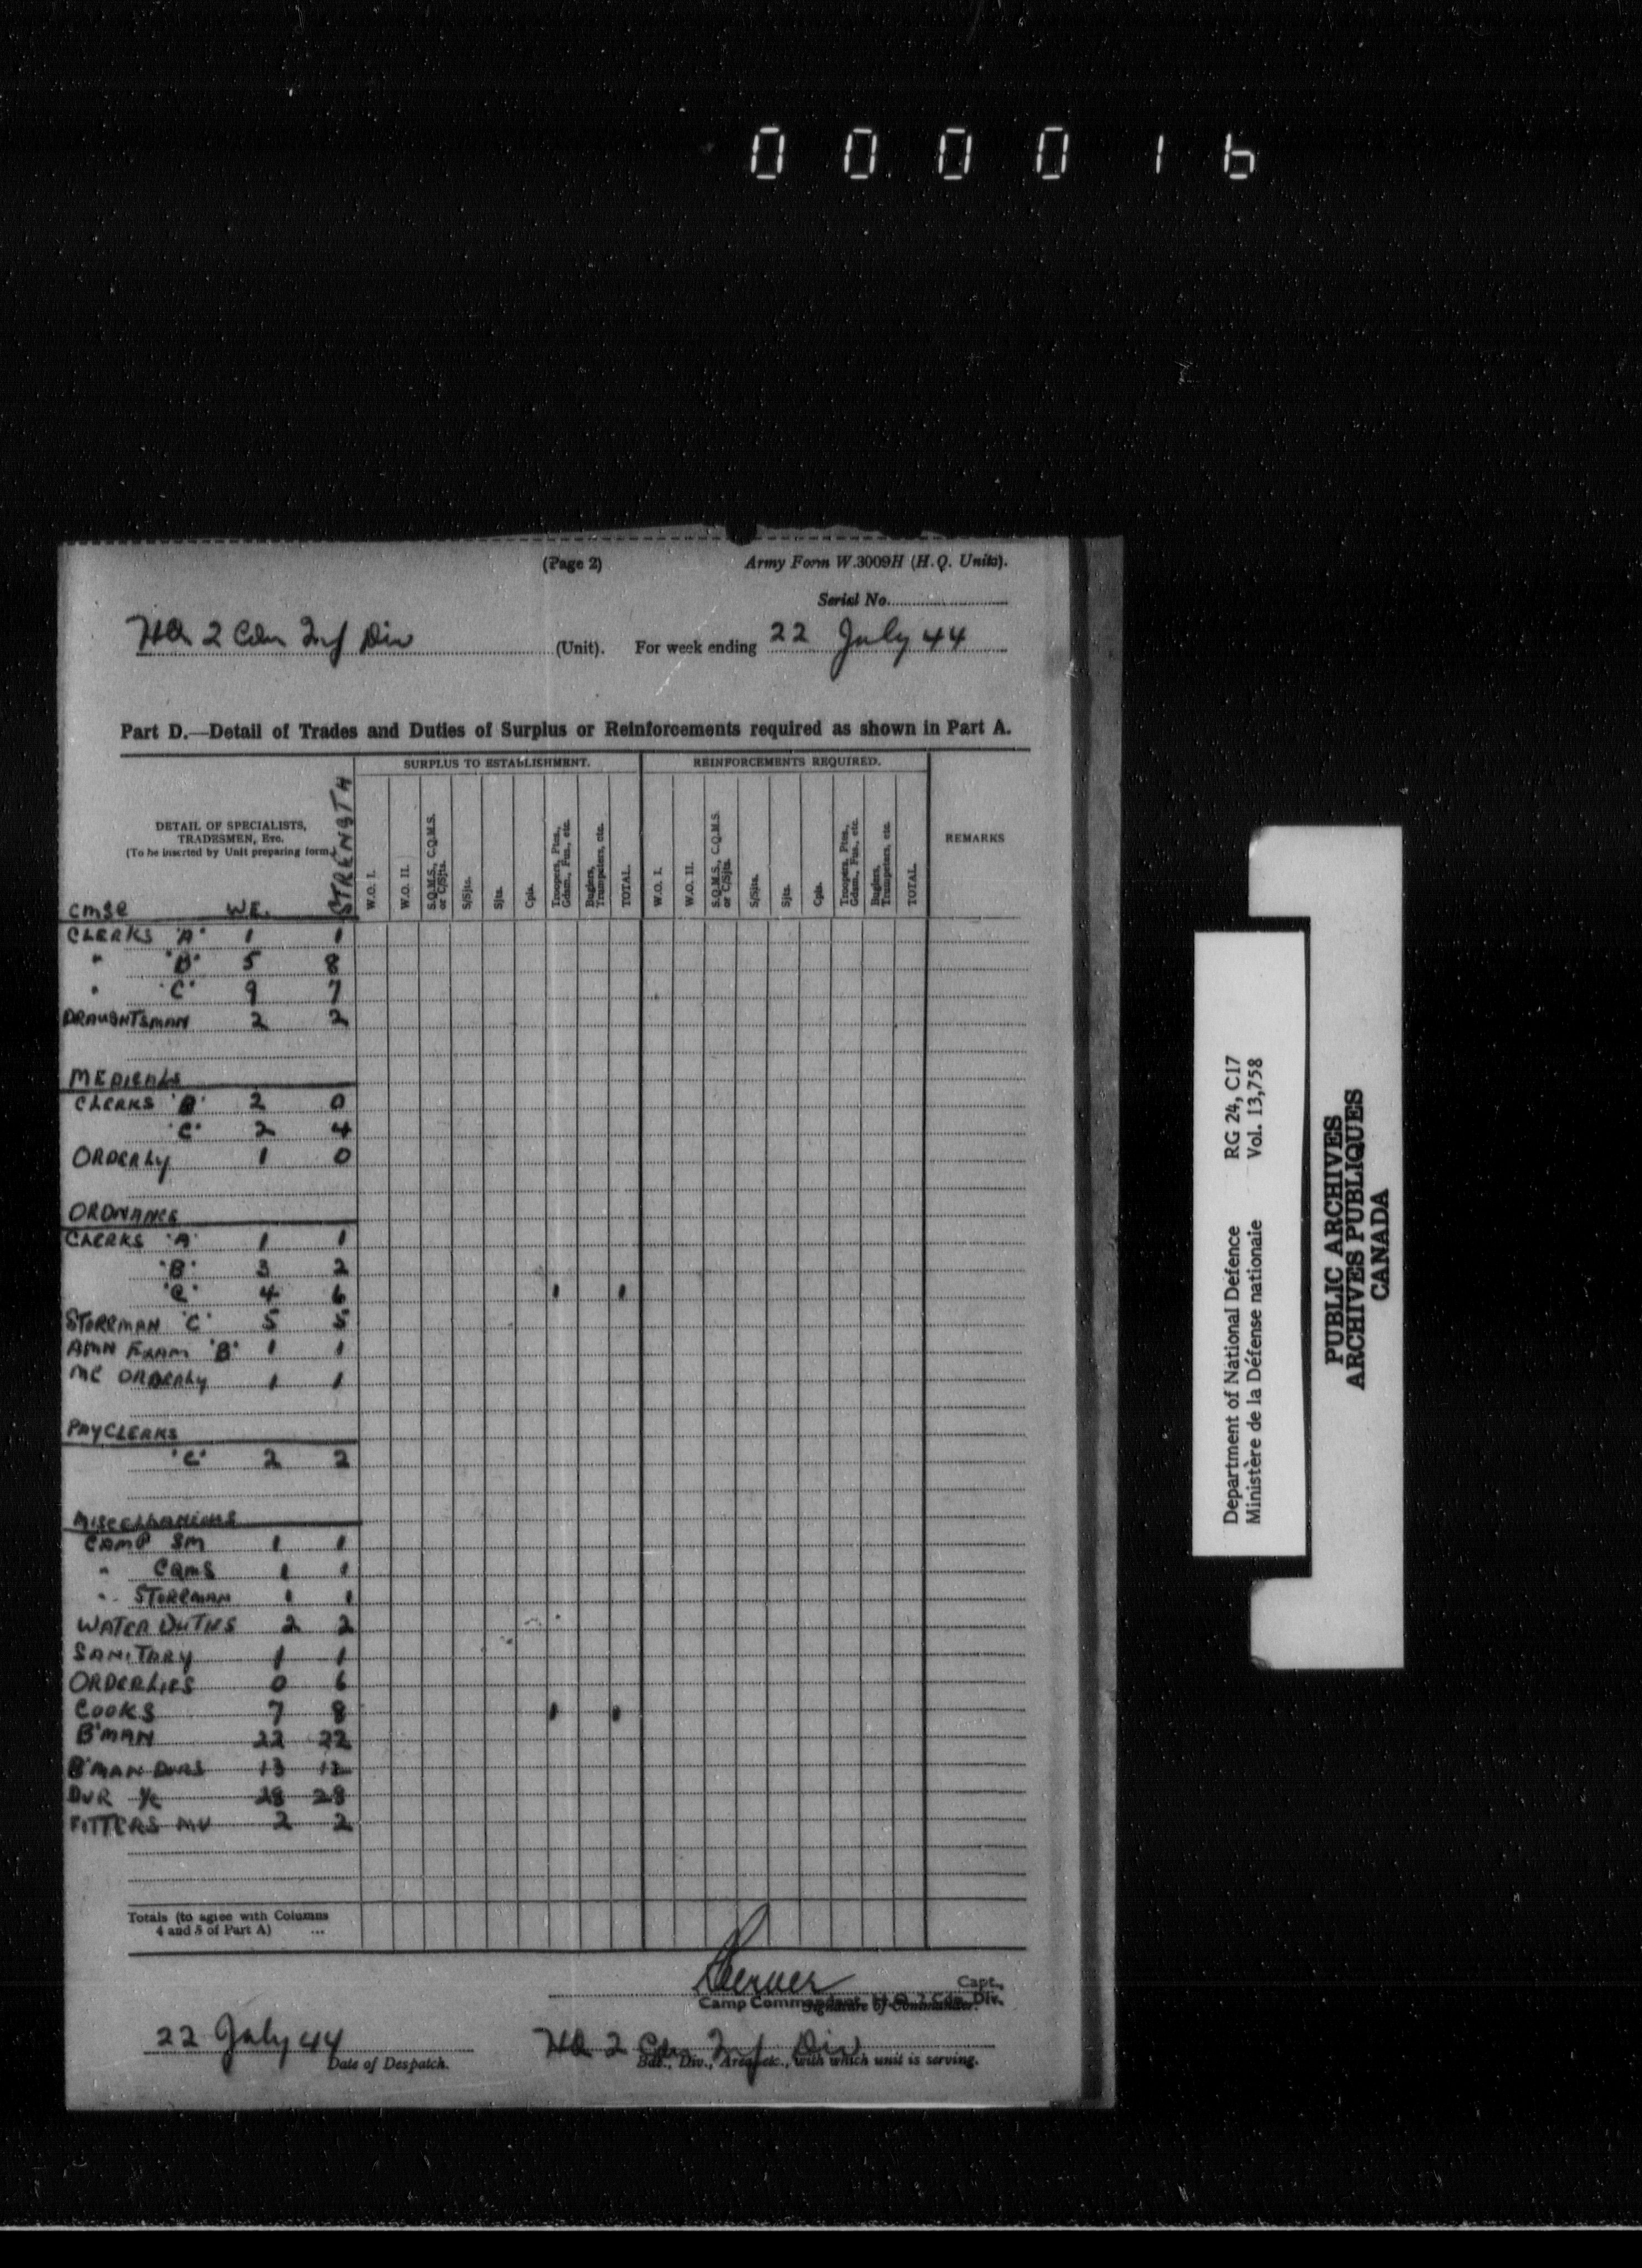 000016
(Page 2) Army Form W.3009H (H.Q. Units).
Serial No.
HQ 2 Cdn Inf Div (Unit). For week ending 22 July 44
Part D.—Detail of Trades and Duties of Surplus or Reinforcements required as shown in Part A.
SURPLUS TO ESTABLISHMENT. REINFORCEMENTS REQUIRED.
DETAIL OF SPECIALISTS,
TRADESMEN, Etc.
(To be inserted by Unit preparing form.)
STRENGTH
W.O. I.
W.O. II.
S.Q.M.S., C.Q.M.S.
or C/Sjts.
S/Sjts.
Sjts.
Cpls.
Troopers, Ptes.,
Gdsm., Fus., etc.
Buglers,
Trumpeters, etc.
TOTAL.
W.O. I.
W.O. II.
S.Q.M.S., C.Q.M.S.
or C/Sjts.
S/Sjts.
Sjts.
Cpls.
Troopers, Ptes.,
Gdsm., Fus., etc.
Buglers,
Trumpeters, etc.
TOTAL.
REMARKS
CMSC WE.
CLERKS 'A' 1 1
" 'B' 5 8
" 'C' 9 7
DRAUGHTSMAN 2 2
MEDICALS
CLERKS 'B' 2 0
'C' 2 4
ORDERLY 1 0
ORDNANCE
CLERKS 'A' 1 1
'B' 3 2
'C' 4 6 1 1
STOREMAN 'C' 5 5
AMN EXAM 'B' 1 1
MC ORDERLY 1 1
PAY CLERKS
'C' 2 2
MISCELLANIOUS
CAMP SM 1 1
" CQMS 1 1
" STOREMAN 1 1
WATER DUTIES 2 2
SANITARY 1 1
ORDERLIES 0 6
COOKS 7 8 1 1
B'MAN 22 22
B'MAN DVRS 13 12
DVR I/C 28 28
FITTERS MV 2 2
Totals (to agree with Columns
4 and 5 of Part A) ...
Capt.,
Camp Commandant, H.Q. 2 Cdn. Div.
Signature of Commander.
22 July 44 HQ 2 Cdn Inf Div
Date of Despatch. Bde., Div., Area, etc., with which unit is serving.
Department of National Defence RG 24, C17
Ministère de la Défense nationale Vol. 13,758
PUBLIC ARCHIVES
ARCHIVES PUBLIQUES
CANADA